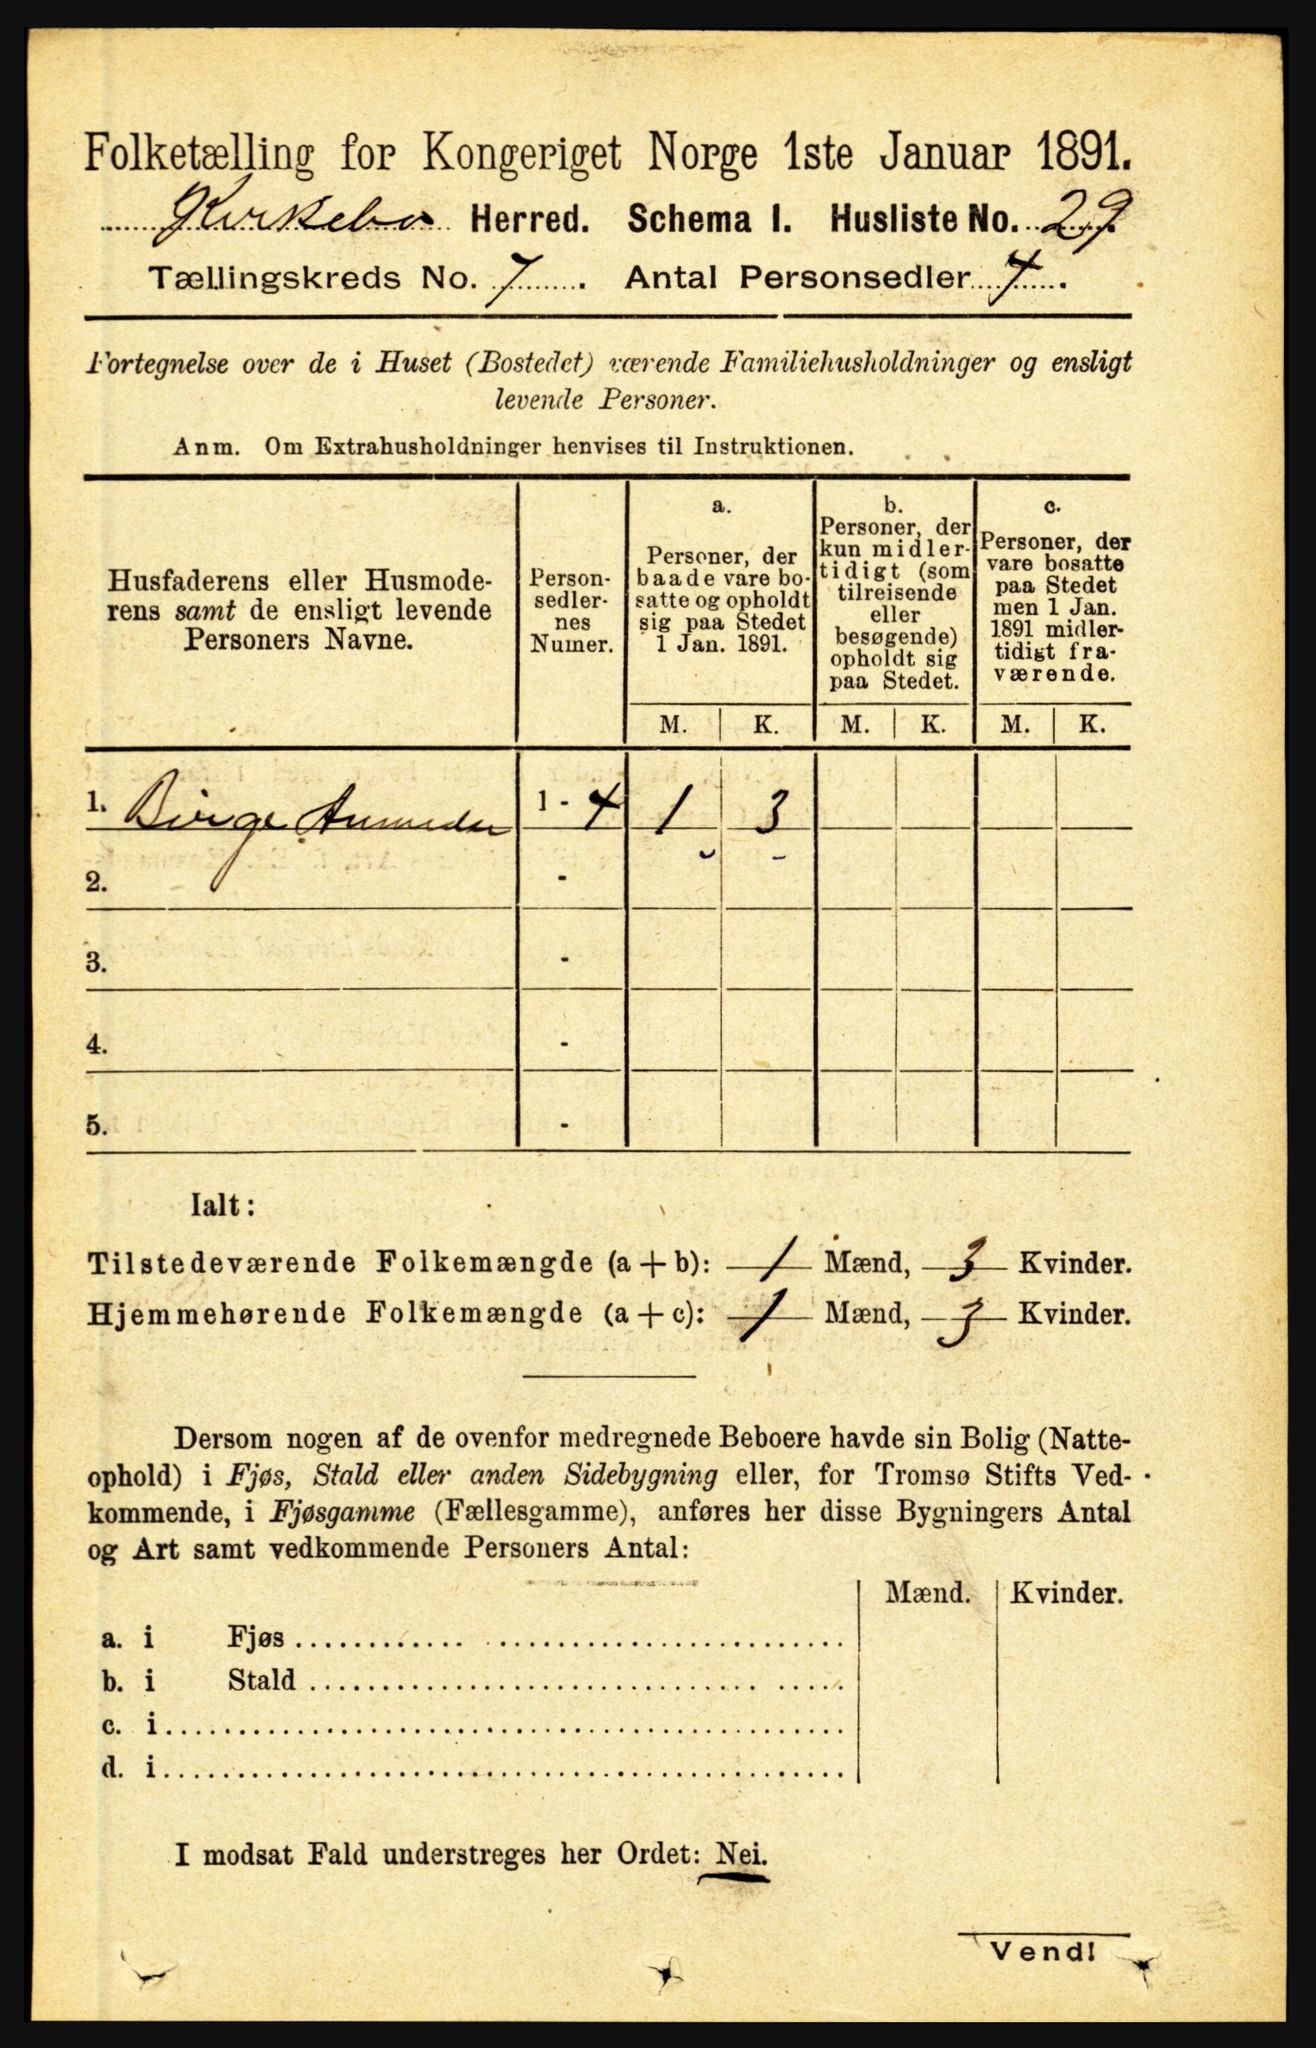 Folketælling for Kongeriget Norge 1ste Januar 1891.
Kirkebø Herred. Schema I. Husliste No. 29
Tællingskreds No. 7. Antal Personsedler 4.
Fortegnelse over de i Huset (Bostedet) værende Familiehusholdninger og ensligt
levende Personer.
Anm. Om Extrahusholdninger henvises til Instruktionen.
Husfaderens eller Husmode-
rens samt de ensligt levende
Personers Navne.
Person-
sedler-
nes
Numer.
a.
Personer, der
baade vare bo-
satte og opholdt
sig paa Stedet
1 Jan. 1891.
b.
Personer, der
kun midler-
tidigt (som
tilreisende
eller
besøgende)
opholdt sig
paa Stedet.
c.
Personer, der
vare bosatte
paa Stedet
men 1 Jan.
1891 midler-
tidigt fra-
værende.
M. K. M. K. M. K.
1. Børge 1 - 4 1 3
2. -
3. -
4. -
5. -
Ialt:
Tilstedeværende Folkemængde (a + b): 1 Mænd, 3 Kvinder.
Hjemmehørende Folkemængde (a + c): 1 Mænd, 3 Kvinder.
Dersom nogen af de ovenfor medregnede Beboere havde sin Bolig (Natte-
ophold) i Fjøs, Stald eller anden Sidebygning eller, for Tromsø Stifts Ved-
kommende, i Fjøsgamme (Fællesgamme), anføres her disse Bygningers Antal
og Art samt vedkommende Personers Antal:
Mænd. Kvinder.
a. i Fjøs
b. i Stald
c. i
d. i
I modsat Fald understreges her Ordet: Nei.
Vend!